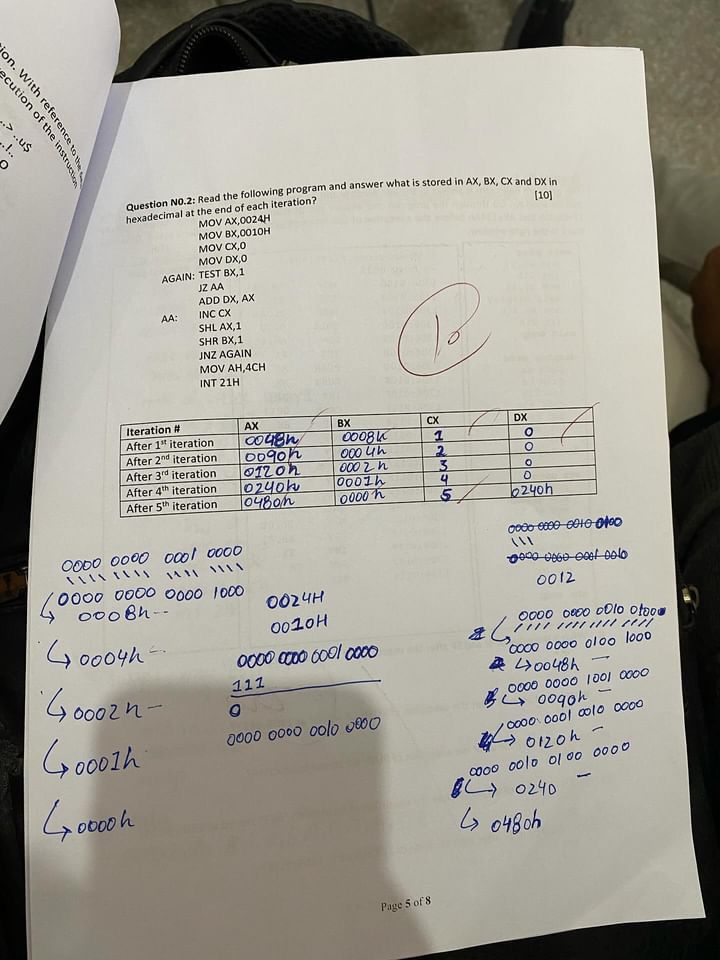 ion. With reference to the
ecution of the instruction
Question N0.2: Read the following program and answer what is stored in AX, BX, CX and DX in
hexadecimal at the end of each iteration? [10]
MOV AX,0024H
MOV BX,0010H
MOV CX,0
MOV DX,0
AGAIN: TEST BX,1
JZ AA
ADD DX, AX
AA: INC CX
SHL AX,1
SHR BX,1
JNZ AGAIN
MOV AH,4CH
INT 21H
10
Iteration # AX BX CX DX
After 1st iteration 0048h 0008h 1 0
After 2nd iteration 0090h 0004h 2 0
After 3rd iteration 0120h 0002h 3 0
After 4th iteration 0240h 0001h 4 0
After 5th iteration 0480h 0000h 5 0240h
0000 0000 0001 0000
0000 0000 0000 1000
0008h
0004h
0002h
0001h
0000h
0024H
0010H
0000 0000 0001 0000
111
0
0000 0000 0010 0000
0000 0000 0010 0100
111
0000 0000 0001 0010
0012
0000 0000 0010 0100
0000 0000 0100 1000
0048h
0000 0000 1001 0000
0090h
0000 0001 0010 0000
0120h
0000 0010 0100 0000
0240
0480h
Page 5 of 8